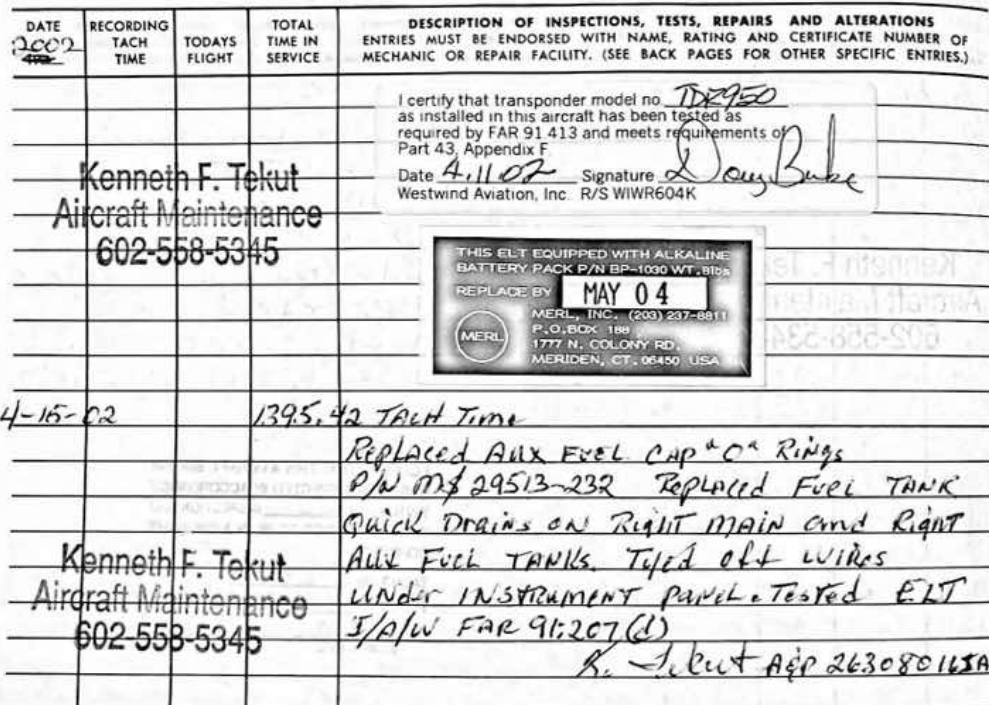 DATE RECORDING TACH TIME TODAYS FLIGHT TOTAL TIME IN SERVICE DESCRIPTION OF INSPECTIONS, TESTS, REPAIRS AND ALTERATIONS
2002 ENTRIES MUST BE ENDORSED WITH NAME, RATING AND CERTIFICATE NUMBER OF
MECHANIC OR REPAIR FACILITY. (SEE BACK PAGES FOR OTHER SPECIFIC ENTRIES.)
I certify that transponder model no. TDR950
as installed in this aircraft has been tested as
required by FAR 91 413 and meets requirements of
Part 43, Appendix F.
Date 4.11.02 Signature Doug Burke
Westwind Aviation, Inc. R/S WIWR604K
Kenneth F. Tekut
Aircraft Maintenance
602-558-5345
THIS ELT EQUIPPED WITH ALKALINE
BATTERY PACK P/N BP-1030 WT.8lbs
REPLACE BY MAY 04
MERL, INC. (203) 237-8811
MERL P.O.BOX 188
1777 N. COLONY RD.
MERIDEN, CT. 06450 USA
4-15-02 1395.42 TACH Time
Replaced Aux Fuel Cap "O" Rings
P/N MS 29513-232 Replaced Fuel TANK
Quick Drains on Right MAIN and Right
Aux Fuel TANKS. Tyed off wires
UNder INSTRUMENT panel. Tested ELT
I/A/W FAR 91.207(d)
K. Tekut A&P 263080165A
Kenneth F. Tekut
Aircraft Maintenance
602-558-5345